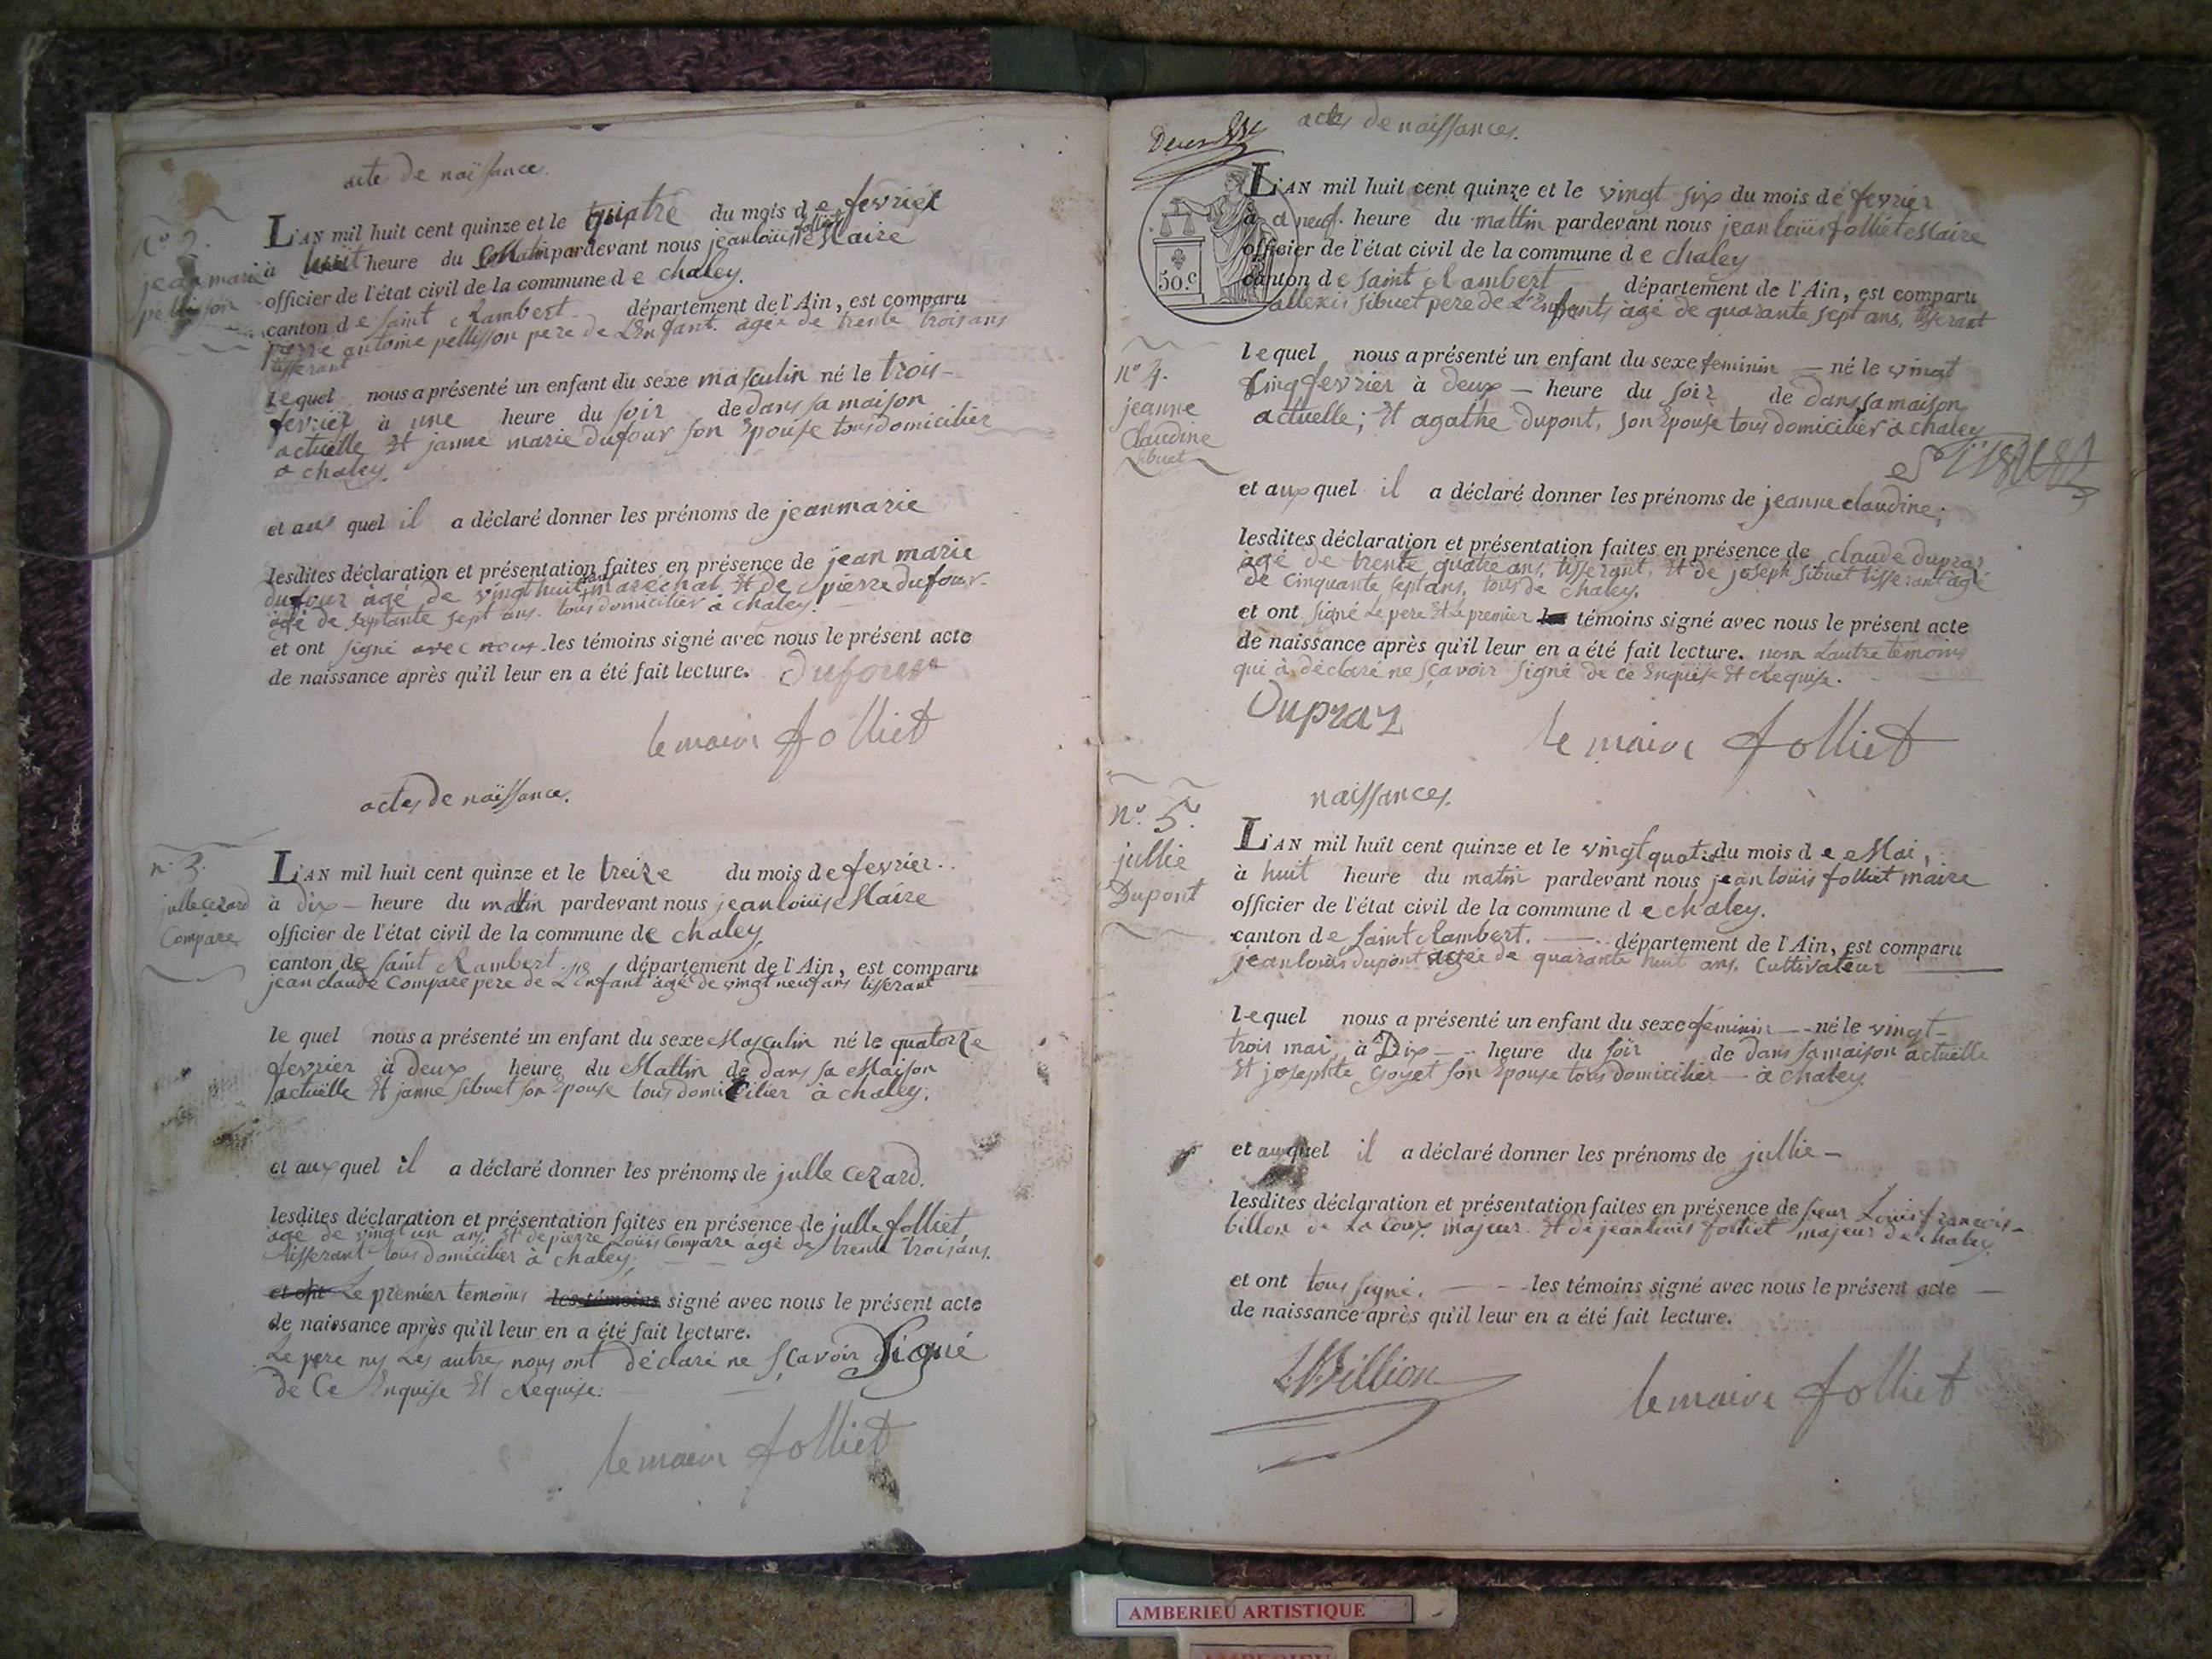 acte de naissance.
n.° 2.
jean marie
pellisson
L'AN mil huit cent quinze et le quatre du mois de fevrier
à huit heure du Mattin pardevant nous jean louiis folliet Maire
officier de l'état civil de la commune de chaley.
canton de saint Rambert département de l'Ain, est comparu
pierre antoine pellisson pere de L'Enfant. agé de trente trois ans
tisserant
lequel nous a présenté un enfant du sexe masculin né le trois
fevrier à une heure du soir de dans sa maison
actuelle Et janne marie dufour son Epouse tous domicilier
a chaley.
et aux quel il a déclaré donner les prénoms de jeanmarie
lesdites déclaration et présentation faites en présence de jean marie
dufour agé de vingthuit ans marechal Et de pierre dufour
agé de septante sept ans. tous domicilier à chaley.
et ont signé avec nous les témoins signé avec nous le présent acte
de naissance après qu'il leur en a été fait lecture. Dufour
le maire folliet
actes de naissance.
n.° 3.
julle cezard
Compare
L'AN mil huit cent quinze et le treize du mois de fevrier..
à Dix heure du matin pardevant nous jean louiis Maire
officier de l'état civil de la commune de chaley
canton de saint Rambert département de l'Ain, est comparu
jean claude Compare pere de L'Enfant agé de vingt neuf ans tisserant
le quel nous a présenté un enfant du sexe Masculin né le quatorze
fevrier à deux heure du Mattin de dans sa Maison
actuelle Et janne sibuet son Epouse tous domicilier à chaley.
et aux quel il a déclaré donner les prénoms de julle cezard.
lesdites déclaration et présentation faites en présence de julle folliet,
agé de vingt un ans, Et de pierre Louiis Compare agé de trente trois ans.
tisserant tous domicilier à chaley.
et ont Le premier temoins les témoins signé avec nous le présent acte
de naissance après qu'il leur en a été fait lecture.
Le pere ny Les autres nous ont déclaré ne sçavoir Signé
de Ce Enquise Et Requise.
le maire folliet
actes de naissances.
50.c
L'AN mil huit cent quinze et le vingt six du mois de fevrier
à a neuf heure du mattin pardevant nous jean louiis folliet Maire
officier de l'état civil de la commune de chaley
canton de saint Rambert département de l'Ain, est comparu
allexis sibuet pere de L'Enfants agé de quarante sept ans, tisserant
n° 4.
jeanne
Claudine
sibuet
lequel nous a présenté un enfant du sexe feminin né le vingt
Cinq fevrier à deux heure du soir de dans sa maison
actuelle; Et agathe dupont, son Epouse tous domicilier a chaley
et aux quel il a déclaré donner les prénoms de jeanne claudine;
lesdites déclaration et présentation faites en présence de claude dupraz
agé de trente quatre ans, tisserant, Et de joseph sibuet tisserant agé
de cinquante sept ans, tous de chaley.
et ont signé Le pere Et Le premier témoins signé avec nous le présent acte
de naissance après qu'il leur en a été fait lecture. non Lautre témoins
qui à déclaré ne sçavoir signé de Ce Enquise Et Requise.
Dupraz
le maire folliet
naissances.
n.° 5.
jullie
Dupont
L'AN mil huit cent quinze et le vingt quatre du mois de Mai,
à huit heure du matin pardevant nous jean louiis folliet maire
officier de l'état civil de la commune de chaley.
canton de saint Rambert. département de l'Ain, est comparu
jean louiis dupont agee de quarante huit ans. Cultivateur
lequel nous a présenté un enfant du sexe feminin né le vingt
trois mai, à Dix heure du soir de dans sa maison actuelle
Et josephte Goyet son Epouse tous domicilier à chaley
et auquel il a déclaré donner les prénoms de jullie
lesdites déclaration et présentation faites en présence de sieur Louis francois
billion de La Coux majeur. Et de jean louis folliet majeur de chaley
et ont tous signé. les témoins signé avec nous le présent acte
de naissance après qu'il leur en a été fait lecture.
Billion
le maire folliet
AMBERIEU ARTISTIQUE
AMBERIEU